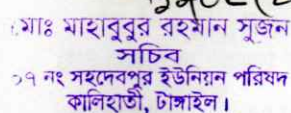 মোঃ মাহাবুবুর রহমান সুজন
সচিব
১৭ নং সহদেবপুর ইউনিয়ন পরিষদ
কালিহাতী, টাঙ্গাইল।